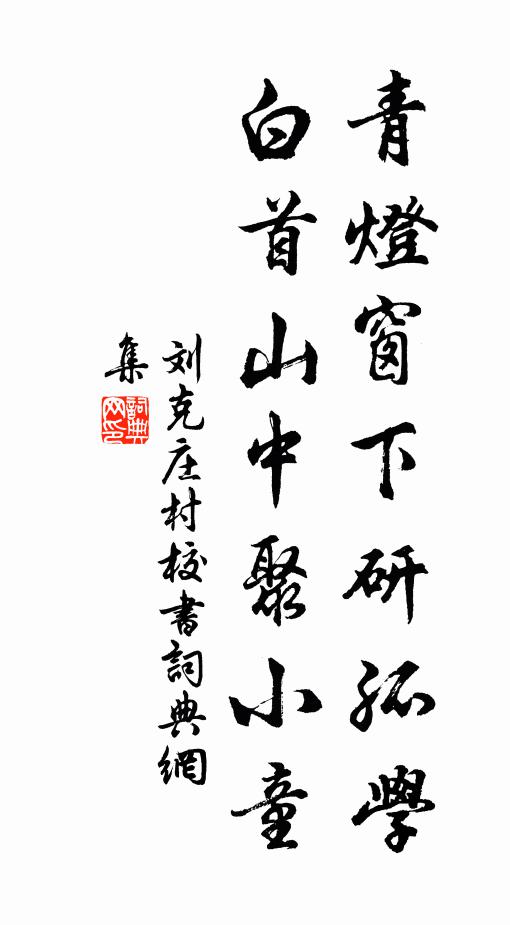 青燈窗下研孤學
白首山中聚小童
刘克庄村校書詞典網
集
詞典網印